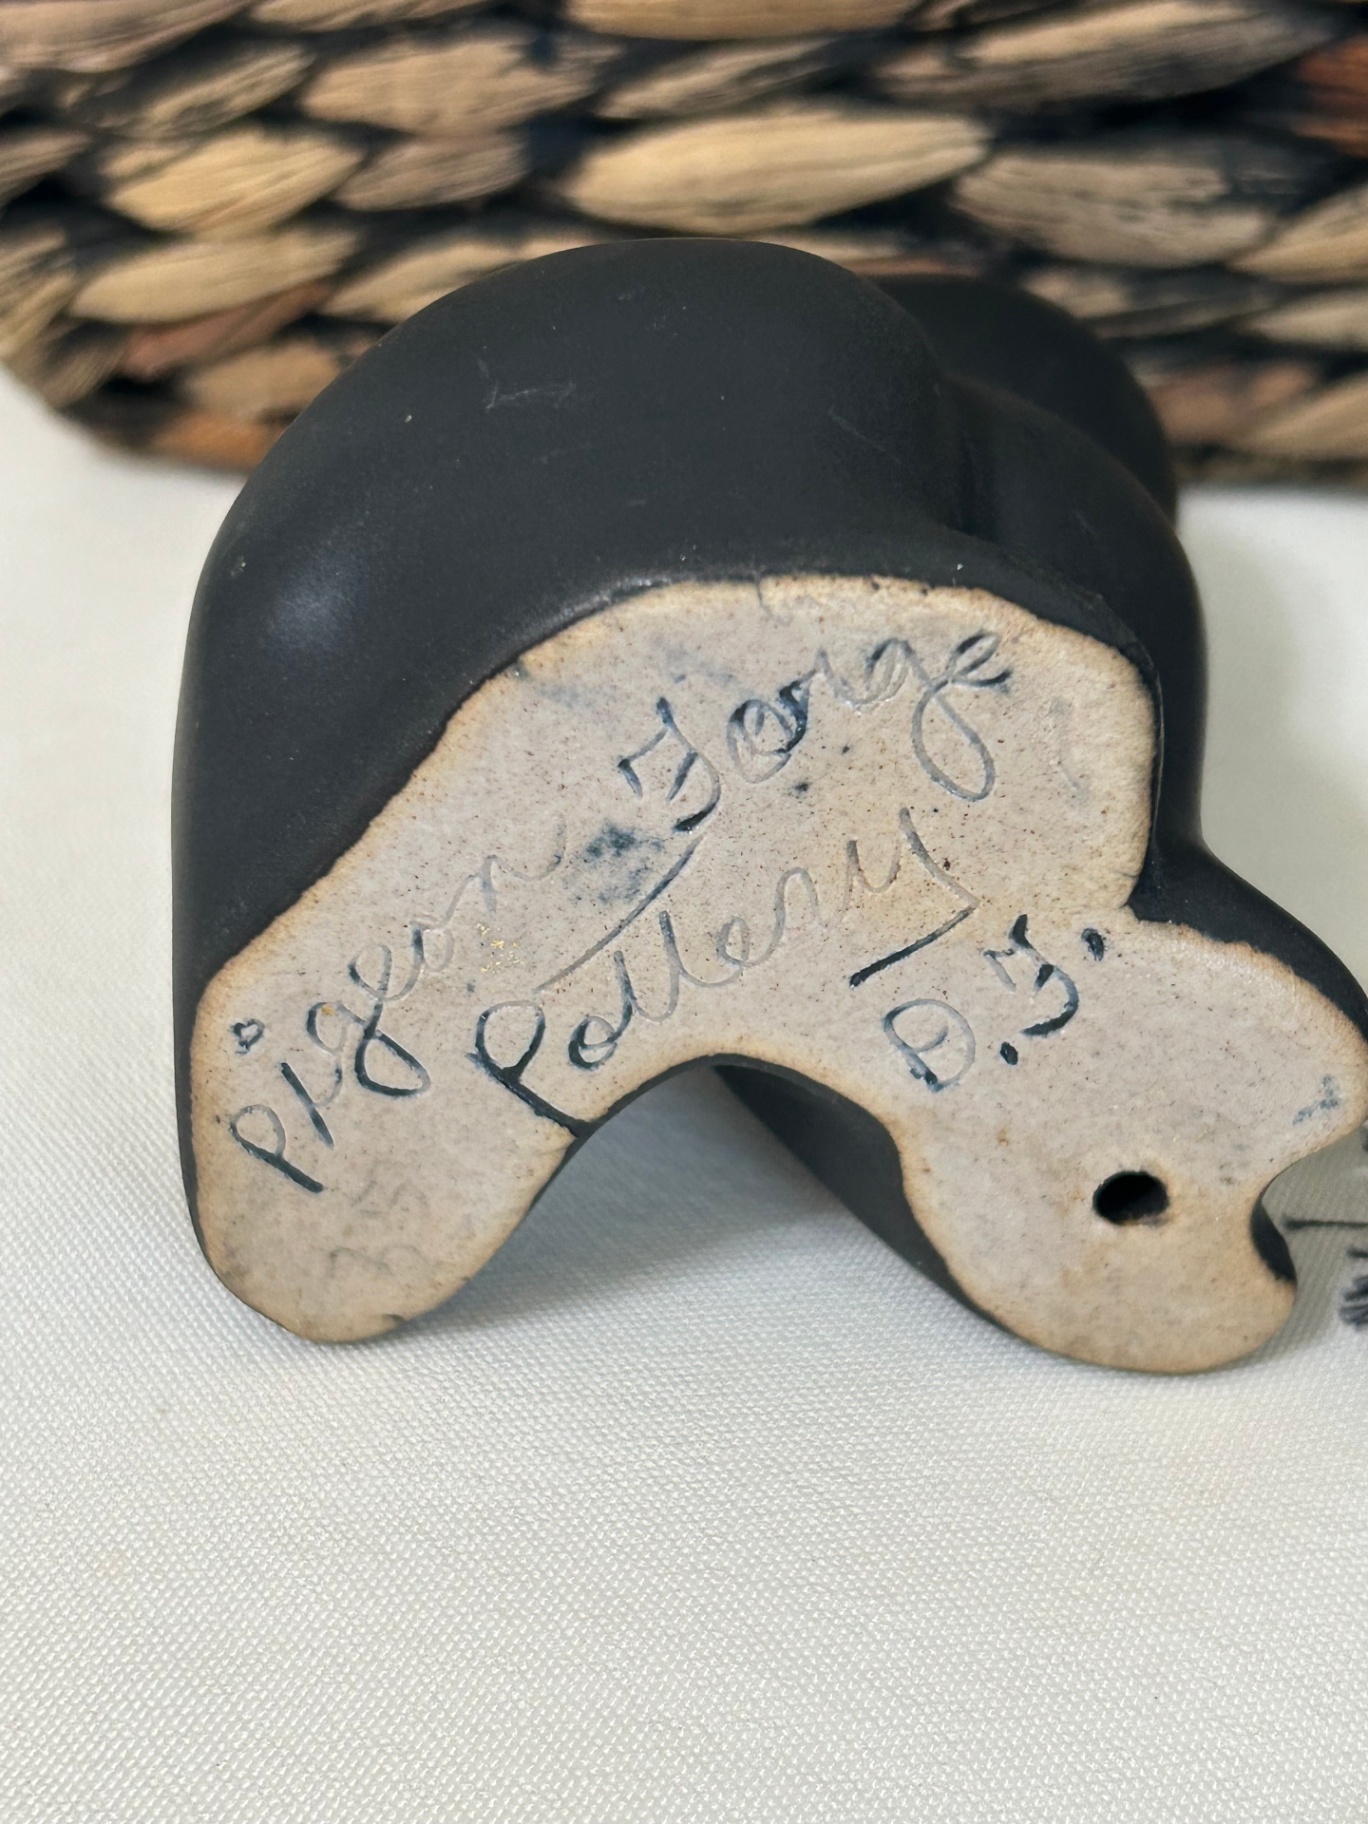 Pigeon Forge
Pottery
D.F.